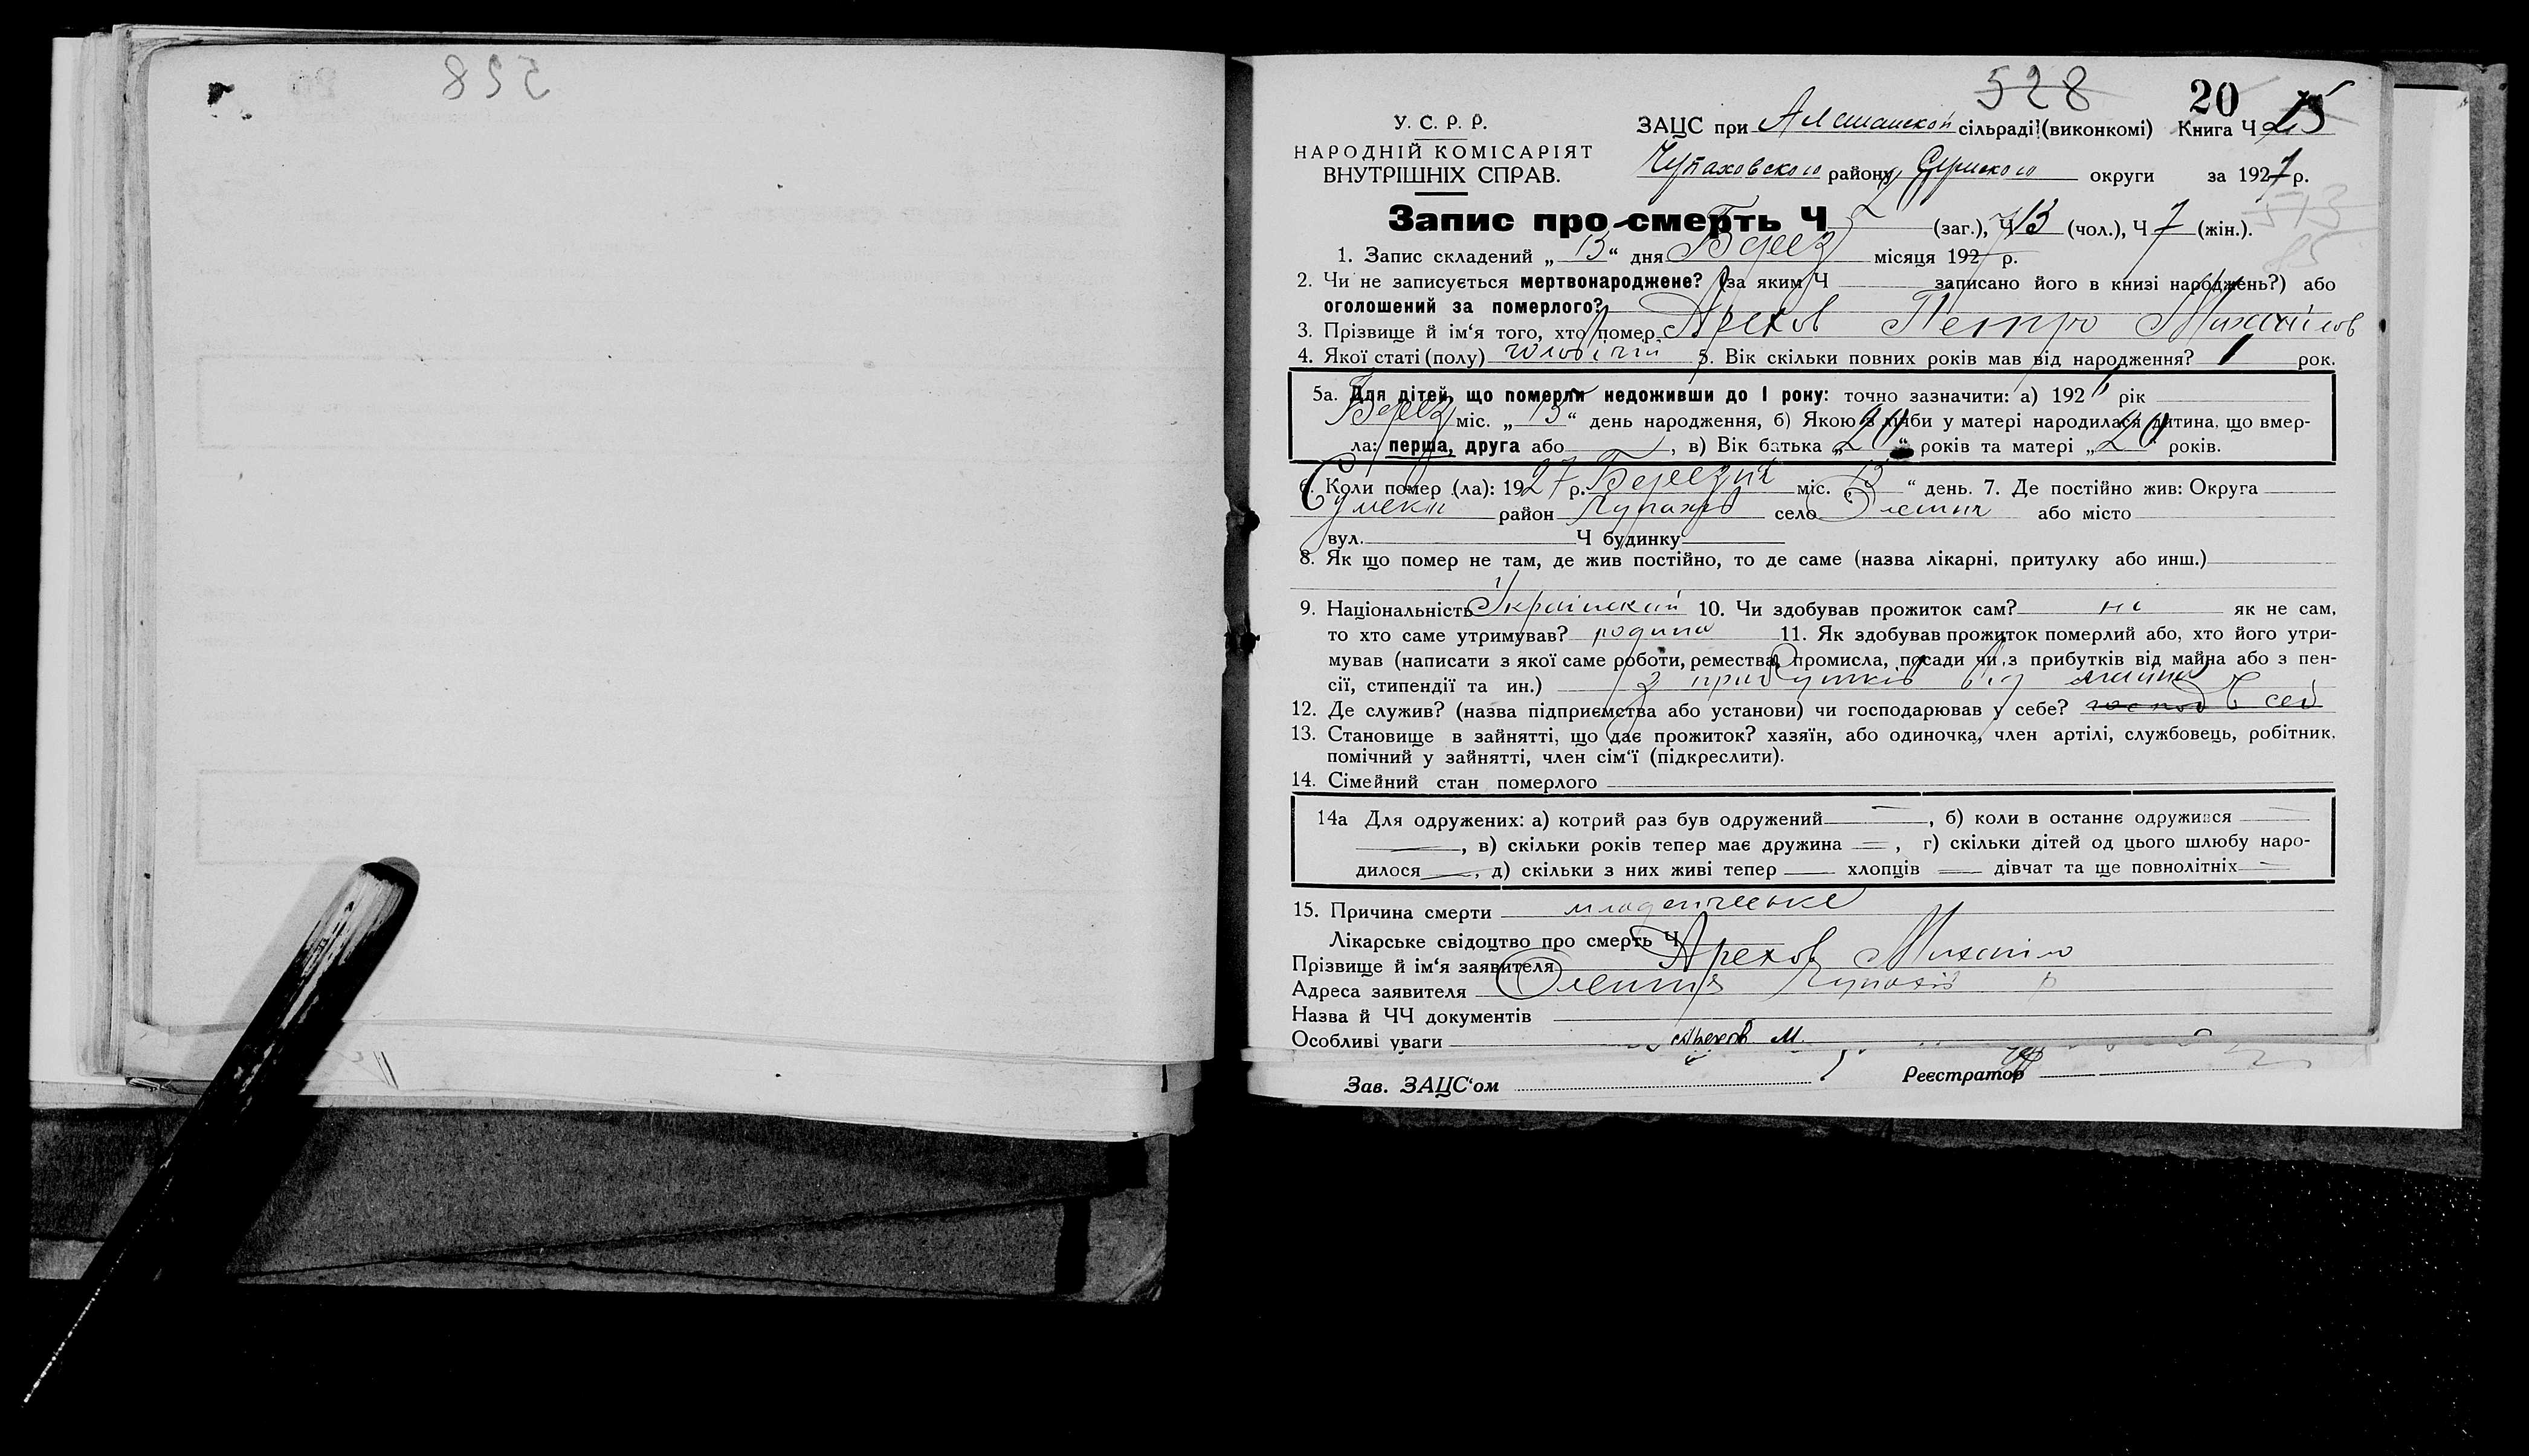 528
20
15
У. С. Р. Р.
НАРОДНІЙ КОМІСАРІЯТ
ВНУТРІШНІХ СПРАВ.
ЗАЦС при сільраді (виконкомі) Книга Ч 25
Чупаховского району Сумского округи за 1927 р.
513
Запис про смерть Ч (заг.), Ч 13 (чол.), Ч 7 (жін.).
1. Запис складений „ 13 “ дня Берез місяця 1927 р.
2. Чи не записується мертвонароджене? (за яким Ч записано його в книзі народжень?) або
оголошений за померлого?
3. Прізвище й ім‘я того, хто помер. Арехов Петро Михайлов
4. Якої статі (полу) чоловічий 5. Вік скільки повних років мав від народження? 1 рок.
5а. Для дітей, що померли недоживши до 1 року: точно зазначити: а) 1926 рік
Берез міс. „ 13 “ день народження, б) Якою з лічби у матері народилася дитина, що вмер-
ла: перша, друга або , в) Вік батька „ 20 “ років та матері „ 20 “ років.
6. Коли помер (ла): 1927 р. Березня міс. „ 13 “ день. 7. Де постійно жив: Округа
Сумскій район Чупахів село або місто
вул. Ч будинку
8. Як що помер не там, де жив постійно, то де саме (назва лікарні, притулку або инш.)
9. Національність Украінский 10. Чи здобував прожиток сам? ні як не сам,
то хто саме утримував? родина 11. Як здобував прожиток померлий або, хто його утри-
мував (написати з якої саме роботи, ремества, промисла, посади чи з прибутків від майна або з пен-
сії, стипендії та ин.) з прибутків від майна
12. Де служив? (назва підприємства або установи) чи господарював у себе? в себ
13. Становище в зайнятті, що дає прожиток? хазяїн, або одиночка, член артілі, службовець, робітник.
помічний у зайнятті, член сім‘ї (підкреслити).
14. Сімейний стан померлого
14а Для одружених: а) котрий раз був одружений — , б) коли в останнє одружився —
— , в) скільки років тепер має дружина — , г) скільки дітей од цього шлюбу наро-
дилося — , д) скільки з них живі тепер — хлопців — дівчат та ще повнолітніх —
15. Причина смерти младенческе
Лікарське свідоцтво про смерть Ч
Прізвище й ім‘я заявителя Арехов Михайло
Адреса заявителя Чупахів р
Назва й ЧЧ документів
Особливі уваги Арехов М.
Зав. ЗАЦС‘ом Реєстратор